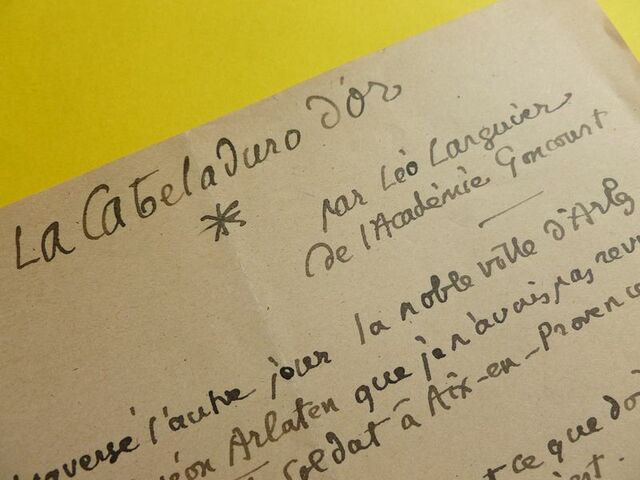 La Cabeladuro d'or
*
par Léo Larguier
de l'Académie Goncourt
traversé l'autre jour la noble ville d'Arles
Arlaten que je n'avais pas revu
soldat à Aix-en-Provence
ce que